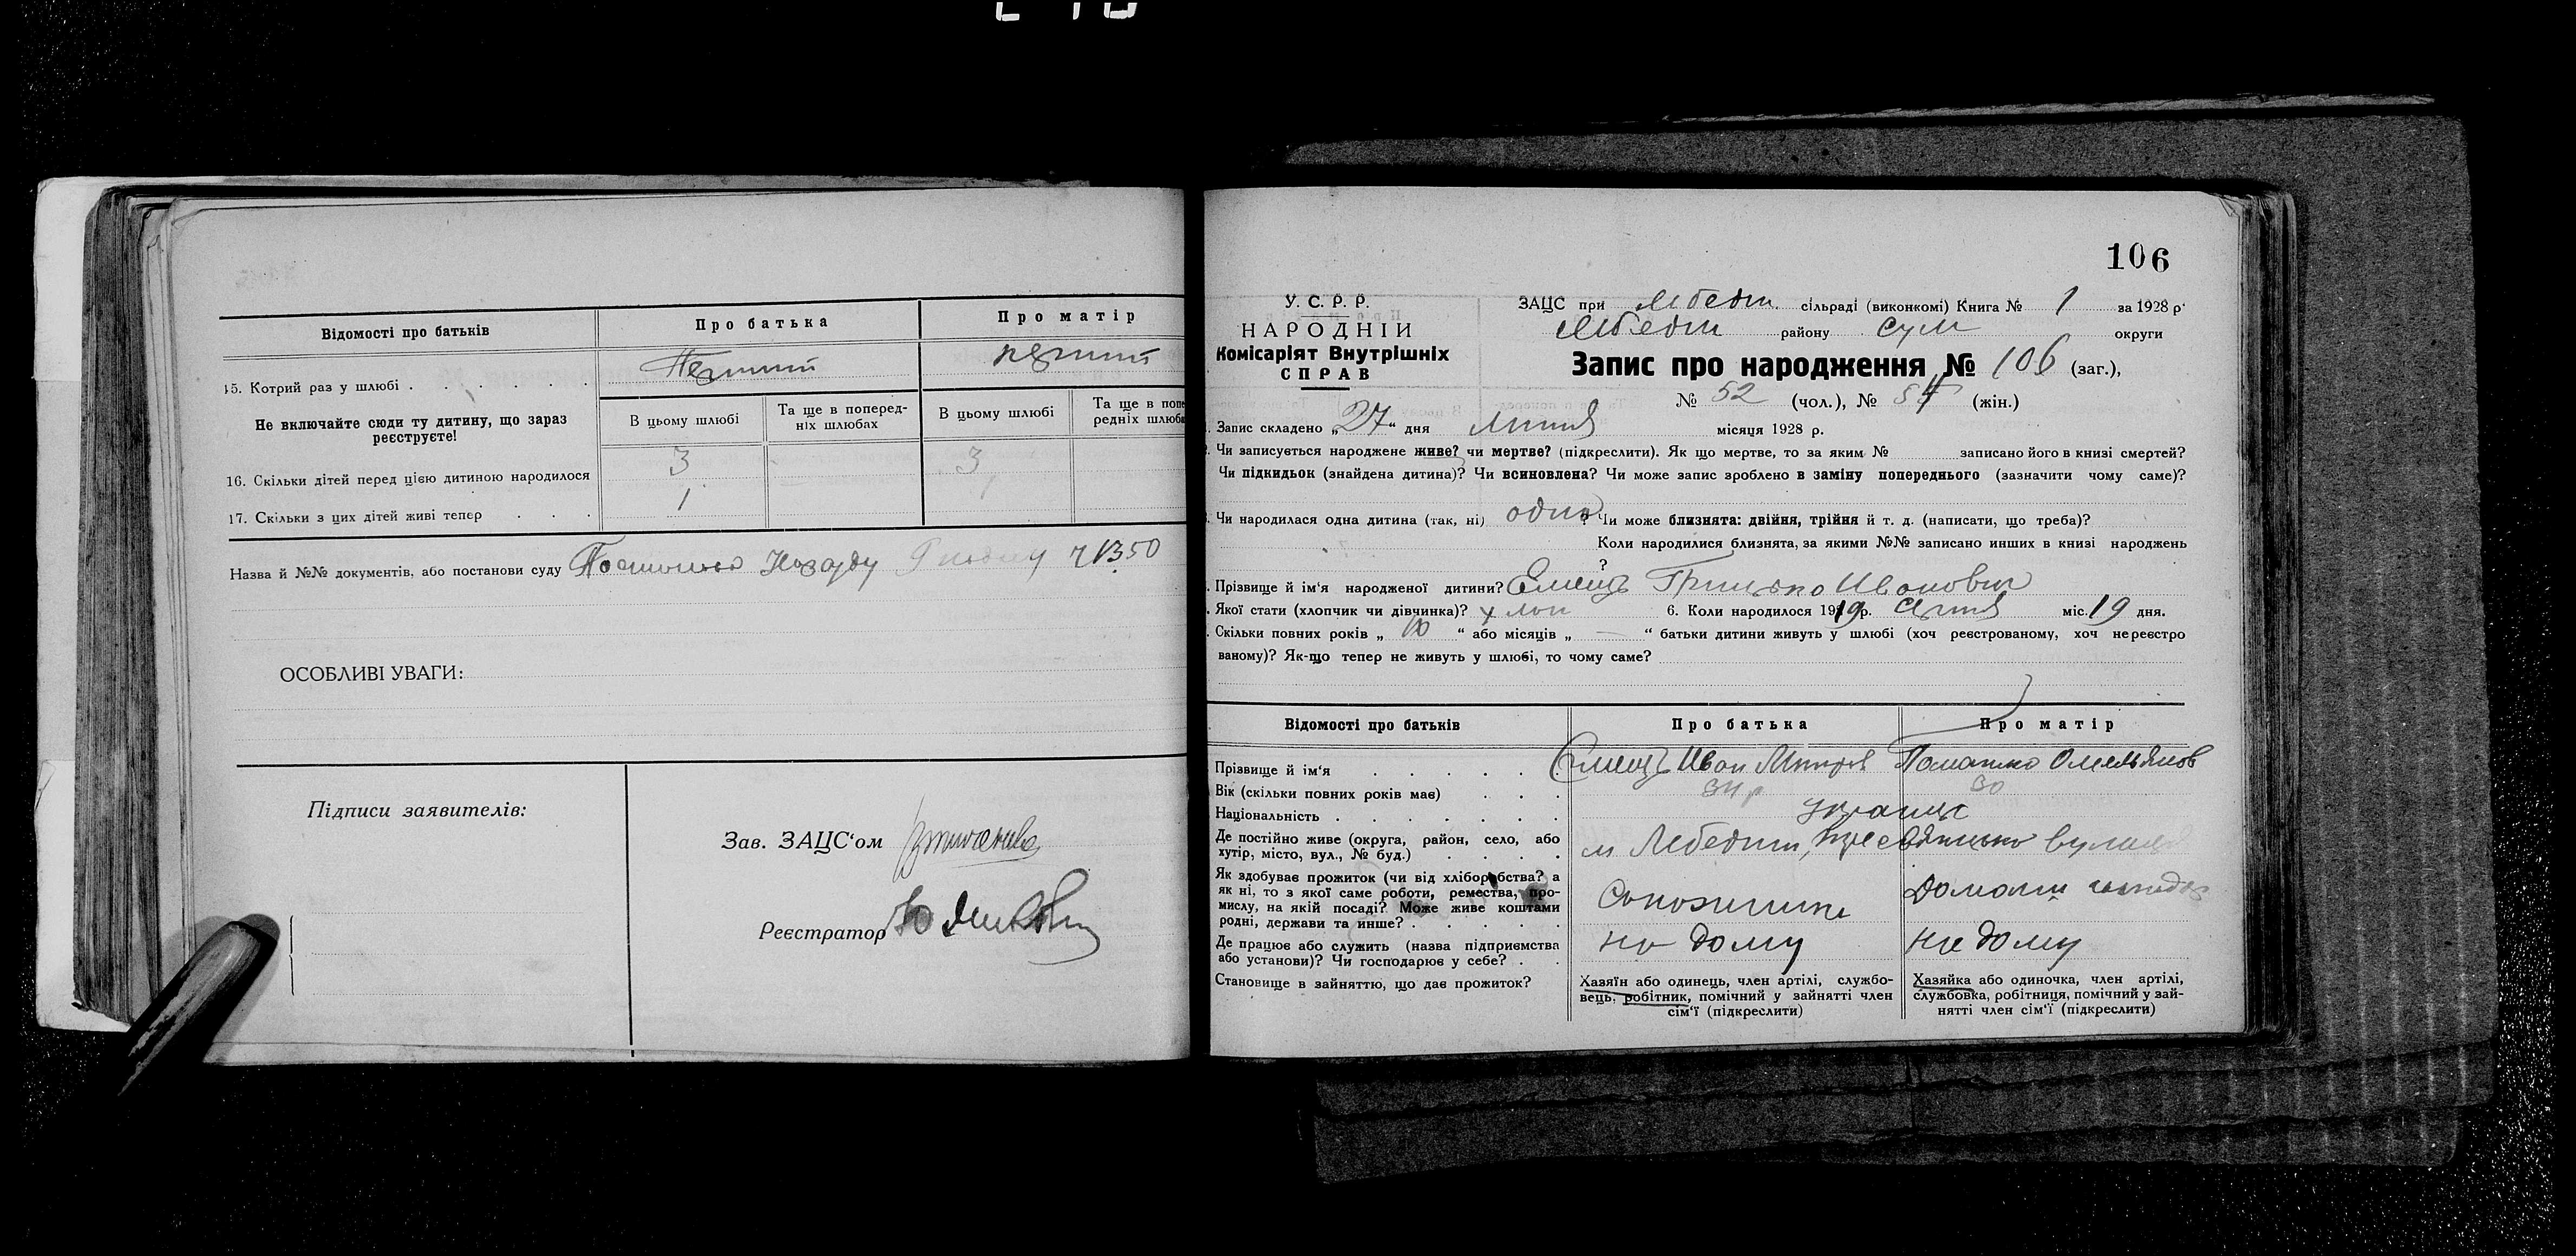 Відомості про батьків
Про батька
Про матір
15. Котрий раз у шлюбі
Перший
перший
Не включайте сюди ту дитину, що зараз реєструєте!
В цьому шлюбі
Та ще в поперед-
ніх шлюбах
В цьому шлюбі
Та ще в попе
редніх шлюба
16. Скільки дітей перед цією дитиною народилося
3
3
17. Скільки з цих дітей живі тепер
1
1
Назва й №№ документів, або постанови суду
ч 1350
ОСОБЛИВІ УВАГИ:
Підписи заявителів:
Зав. ЗАЦС'ом
Реєстратор
106
У. С. Р. Р.
НАРОДНІЙ
Комісаріят Внутрішніх
СПРАВ
ЗАЦС при Лебедин. сільраді (виконкомі) Книга № 1 за 1928 р.
Лебедин району Сум округи
Запис про народження № 106 (заг.),
№ 52 (чол.), № 54 (жін.)
Запис складено „27“ дня місяця 1928 р.
Чи записується народжене живе? чи мертве? (підкреслити). Як що мертве, то за яким № записано його в книзі смертей?
Чи підкидьок (знайдена дитина)? Чи всиновлена? Чи може запис зроблено в заміну попереднього (зазначити чому саме)?
Чи народилася одна дитина (так, ні) одна Чи може близнята: двійня, трійня й т. д. (написати, що треба)?
Коли народилися близнята, за якими №№ записано инших в книзі народжень
?
Прізвище й ім'я народженої дитини? Емець Грицько Иванович
Якої стати (хлопчик чи дівчинка)? хлоп 6. Коли народилося 1919р. міс. 19 дня.
Скільки повних років „10“ або місяців „—“ батьки дитини живуть у шлюбі (хоч реєстрованому, хоч нереєстро
ваному)? Як-що тепер не живуть у шлюбі, то чому саме?
Відомості про батьків
Про батька
Про матір
Прізвище й ім'я
Емець Иван
Омельянов
Вік (скільки повних років має)
34 р
30
Національність
українці
Де постійно живе (округа, район, село, або
хутір, місто, вул., № буд.)
м Лебедин, вулиця
Як здобуває прожиток (чи від хліборобства? а
як ні, то з якої саме роботи, ремества, про-
мислу, на якій посаді? Може живе коштами
родні, держави та инше?
Домашн
Де працює або служить (назва підприємства
або установи)? Чи господарює у себе?
на дому
на дому
Становище в зайняттю, що дає прожиток?
Хазяїн або одинець, член артілі, службо-
вець, робітник, помічний у зайнятті член
сім'ї (підкреслити)
Хазяйка або одиночка, член артілі,
службовка, робітниця, помічний у зай-
нятті член сім'ї (підкреслити)